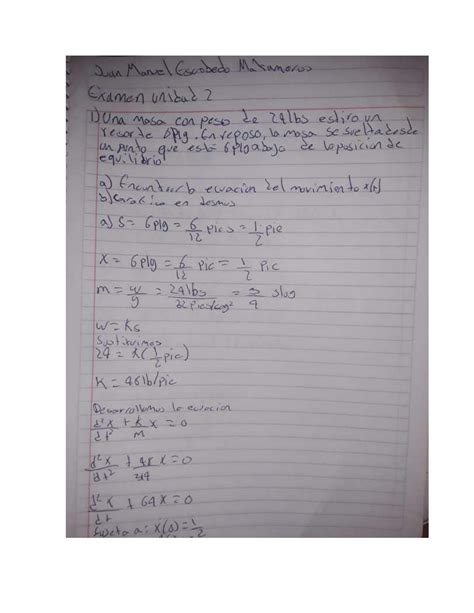 Juan Manuel Escobedo Matamoros
Examen unidad 2
1) Una masa con peso de 24lbs estira un
resorte 6plg. En reposo, la masa se suelta desde
un punto que está 6plg abajo de la posicion de
equilibrio!
a) Encuentur la ecuacion del movimiento x(t)
b) Grafica en desmos
a) S = 6plg = 6/12 pies = 1/2 pie
X = 6plg = 6/12 pie = 1/2 pie
m = w/g = 24lbs/32 pies/seg² = 3/4 slug
w = ks
Sustituimos
24 = k(1/2 pie)
K = 48lb/pie
Desarrollamos la ecuacion
d²x/dt² + k/m x = 0
d²x/dt² + 48/3/4 x = 0
d²x/dt + 64x = 0
Sujeto a: x(0) = 1/2